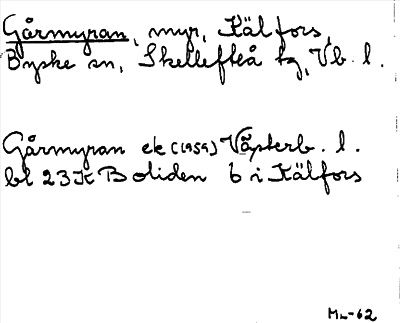 Gårmyran, myr, Kälfors,
Byske sn, Skellefteå tg, Vb. l.
Gårmyran ek (1959) Västerb. l.
bl 23K Boliden 6 i Kälfors
ML-62